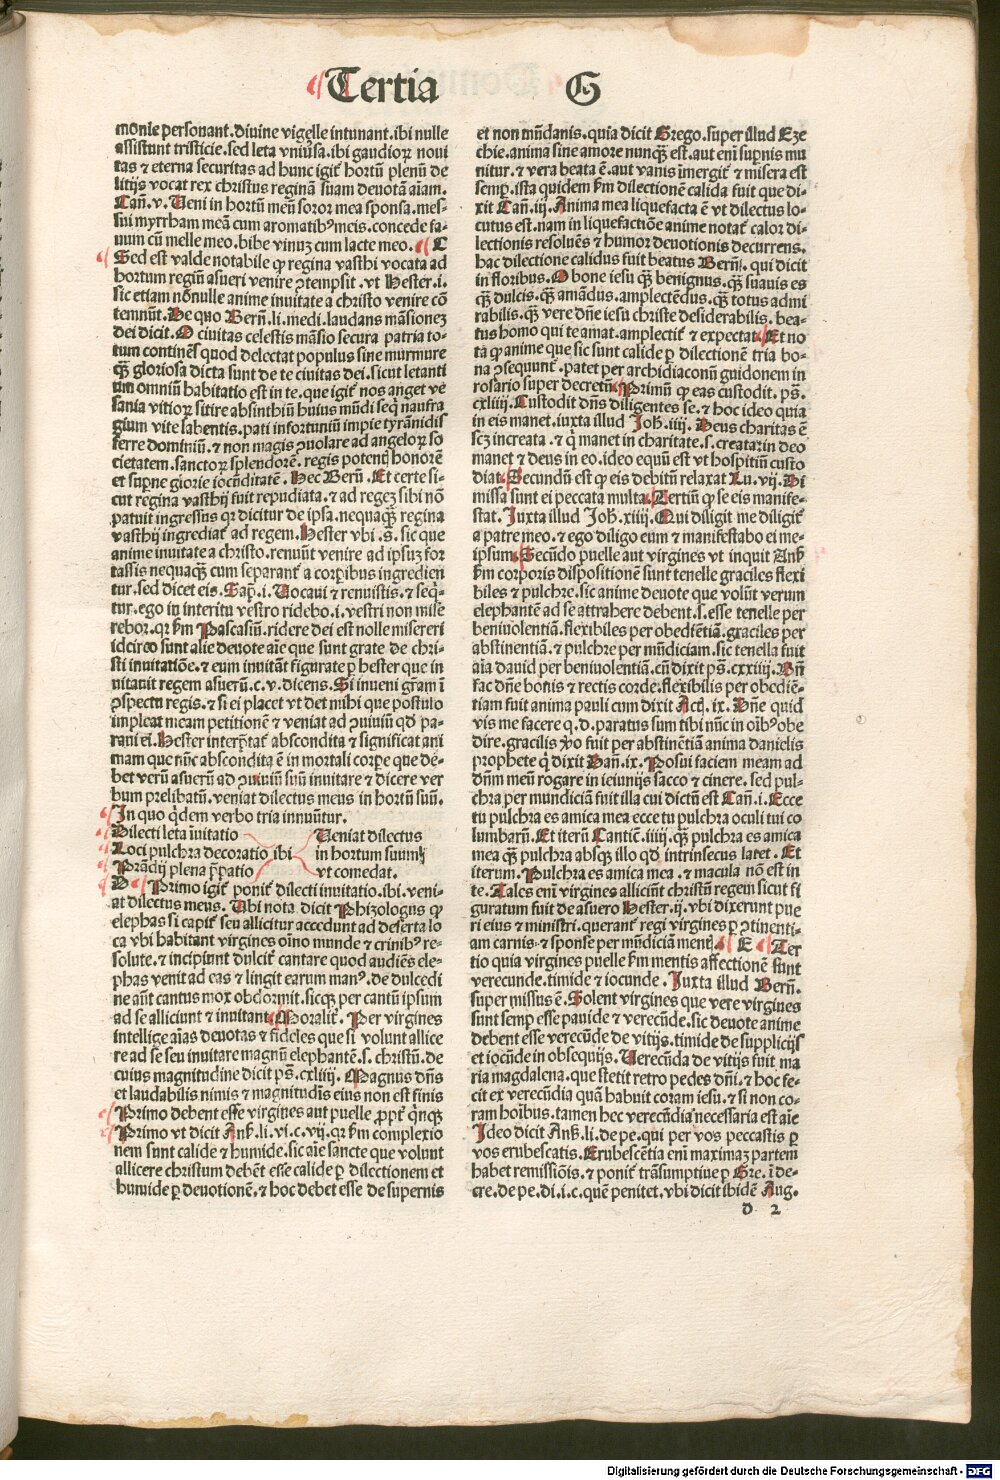 Tertia G
monie personant. diuine vigelle intunant. ibi nulle
assistunt tristicie. sed leta vniũsa. ibi gaudioꝝ noui
tas ⁊ eterna securitas ad hunc igit᷑ hortũ plenũ de
litijs vocat rex christus reginã suam deuotã aĩam.
Cañ. v. Ueni in hortũ meũ soror mea sponsa. mes-
sui myrrham meã cum aromatibꝰ meis. concede fa-
uum cũ melle meo. bibe vinuꝫ cum lacte meo. C
Sed est valde notabile ꝙ regina vasthi vocata ad
hortum regiũ asueri venire ꝯtempsit. vt Hester. i.
sic etiam nõnulle anime inuitate a christo venire cõ
temnũt. De quo Berñ. li. medi. laudans mãsioneꝫ
dei dicit. O ciuitas celestis mãsio secura patria to-
tum continẽs quod delectat populus sine murmure
qꝫ̃ gloriosa dicta sunt de te ciuitas dei. sicut letanti
um omniũ habitatio est in te. que igit᷑ nos anget ve
sania vitioꝝ sitire absinthiũ huius mũdi seqͥ naufra
gium vite labentis. pati infortuniũ impie tyrãnidis
ferre dominiũ. ⁊ non magis ꝯuolare ad angeloꝝ so
cietatem. sanctoꝝ splendorẽ. regis potentꝭ honorẽ
et supne glorie iocũditatẽ. Hec Berñ. Et certe si-
cut regina vasthij fuit repudiata. ⁊ ad regeꝫ sibi nõ
patuit ingressus qꝛ dicitur de ipsa. nequaqꝫ̃ regina
vasthij ingrediat᷑ ad regem. Hester vbi .s. sic que
anime inuitate a christo. renuũt venire ad ipsuꝫ for
tassis nequaqꝫ̃ cum separant᷑ a corpibus ingredien
tur. sed dicet eis. Sap. i. Uocaui ⁊ renuistis. ⁊ seqͥ-
tur. ego in interitu vestro ridebo. i. vestri non mise
rebor. qꝛ ẜm Pascasiũ. ridere dei est nolle misereri
idcirco sunt alie deuote aĩe que sunt grate de chri-
sti inuitatiõe. ⁊ eum inuitãt figurate ꝑ hester que in
uitauit regem asuerũ. c. v. dicens. Si inueni gr̃am ĩ
ꝯspectu regis. ⁊ si ei placet vt det mihi que postulo
impleat meam petitionẽ ⁊ veniat ad ꝯuiuiũ qd̓ pa-
raui ei. Hester interp̃tat᷑ abscondita ⁊ significat ani
mam que nũc abscondita ẽ in mortali corpe que de-
bet verũ asuerũ ad ꝯuiuiũ suũ inuitare ⁊ dicere ver
bum prelibatũ. veniat dilectus meus in hortũ suũ.
In quo qͥdem verbo tria innuũtur.
Dilecti leta ĩuitatio
Loci pulchra decoratio
Prãdij plena p̃patio
ibi
Ueniat dilectus
in hortum suum
vt comedat.
D Primo igit᷑ ponit᷑ dilecti inuitatio. ibi. veni-
at dilectus meus. Ubi nota dicit Phizologus ꝙ
elephas si capit᷑ seu allicitur accedunt ad deserta lo
ca vbi habitant virgines oĩno munde ⁊ crinibꝰ re-
solute. ⁊ incipiunt dulcit᷑ cantare quod audiẽs ele-
phas venit ad eas ⁊ lingit earum manꝰ. de dulcedi
ne aũt cantus mox obdormit. sicqꝫ per cantũ ipsum
ad se alliciunt ⁊ inuitant. Moralit᷑. Per virgines
intellige aĩas deuotas ⁊ fideles que si volunt allice
re ad se seu inuitare magnũ elephantẽ. s. christũ. de
cuius magnitudine dicit pꝰ̃. cxliiij. Magnus dñs
et laudabilis nimis ⁊ magnitudinis eius non est finis
Primo debent esse virgines aut puelle ꝓpt᷑ qͥnqꝫ
Primo vt dicit Anẜ. li. vi. c. vij. qꝛ ẜm complexio
nem sunt calide ⁊ humide. sic aĩe sancte que volunt
allicere christum debẽt esse calide ꝑ dilectionem et
humide ꝑ deuotionẽ. ⁊ hoc debet esse de supernis
et non mũdanis. quia dicit Grego. super illud Eze
chie. anima sine amore nunqꝫ̃ est. aut enĩ supnis mu
nitur. ⁊ vera beata ẽ. aut vanis ĩmergit᷑ ⁊ misera est
semp. ista quidem ẜm dilectionẽ calida fuit que di-
xit Cañ. iij. Anima mea liquefacta ẽ vt dilectus lo-
cutus est. nam in liquefactiõe anime notat᷑ calor di-
lectionis resoluẽs ⁊ humor deuotionis decurrens.
hac dilectione calidus fuit beatus Berñ. qui dicit
in floribus. O bone iesu qꝫ̃ benignus. qꝫ̃ suauis es
qꝫ̃ dulcis. qꝫ̃ amãdus. amplectẽdus. qꝫ̃ totus admi
rabilis. qꝫ̃ vere dñe iesu christe desiderabilis. bea-
tus homo qui te amat. amplectit᷑ ⁊ expectat. Et no
ta ꝙ anime que sic sunt calide ꝑ dilectionẽ tria bo-
na ꝯsequunt᷑. patet per archidiaconũ guidonem in
rosario super decretũ. Primũ ꝙ eas custodit. pꝰ̃.
cxliiij. Custodit dñs diligentes se. ⁊ hoc ideo quia
in eis manet. iuxta illud Joh̓. iiij. Deus charitas ẽ
scꝫ increata. ⁊ qͥ manet in charitate. s. creata: in deo
manet ⁊ deus in eo. ideo equũ est vt hospitiũ custo
diat. Secundũ est ꝙ eis debitũ relaxat Lu. vij. Di
missa sunt ei peccata multa. Tertiũ ꝙ se eis manife-
stat. Juxta illud Joh̓. xiiij. Qui diligit me diligit᷑
a patre meo. ⁊ ego diligo eum ⁊ manifestabo ei me-
ipsum. Secũdo puelle aut virgines vt inquit Anẜ
ẜm corporis dispositionẽ sunt tenelle graciles flexi
biles ⁊ pulchre. sic anime deuote que volũt verum
elephantẽ ad se attrahere debent. s. esse tenelle per
beniuolentiã. flexibiles per obediẽtiã. graciles per
abstinentiã. ⁊ pulchre per mũdiciam. sic tenella fuit
aĩa dauid per beniuolentiã. cũ dixit pꝰ̃. cxxiiij. Bñ
fac dñe bonis ⁊ rectis corde. flexibilis per obediẽ-
tiam fuit anima pauli cum dixit Act̓. ix. Dñe quid
vis me facere q. d. paratus sum tibi nũc in oĩbꝰ obe
dire. gracilis v̓o fuit per abstinẽtiã anima danielis
prophete qͥ dixit Dañ. ix. Posui faciem meam ad
dñm meũ rogare in ieiunijs sacco ⁊ cinere. sed pul-
chra per mundiciã fuit illa cui dictũ est Cañ. i. Ecce
tu pulchra es amica mea ecce tu pulchra oculi tui co
lumbarũ. Et iterũ Cantic̃. iiij. qꝫ̃ pulchra es amica
mea qꝫ̃ pulchra absqꝫ illo qd̓ intrinsecus latet. Et
iterum. Pulchra es amica mea. ⁊ macula nõ est in
te. Tales enĩ virgines alliciũt christũ regem sicut fi
guratum fuit de asuero Hester. ij. vbi dixerunt pue
ri eius ⁊ ministri. querant᷑ regi virgines ꝑ ꝯtinenti-
am carnis ⁊ sponse per mũdiciã mentꝭ. E Ter
tio quia virgines puelle ẜm mentis affectionẽ sunt
verecunde. timide ⁊ iocunde. Juxta illud Berñ.
super missus ẽ. Solent virgines que vere virgines
sunt semp esse pauide ⁊ verecũde. sic deuote anime
debent esse verecũde de vitijs. timide de supplicijs
et iocũde in obsequijs. Uerecũda de vitijs fuit ma
ria magdalena. que stetit retro pedes dñi. ⁊ hoc fe-
cit ex verecũdia quã habuit coram iesu. ⁊ si non co-
ram hoĩbus. tamen hec verecũdia necessaria est aĩe
Ideo dicit Anẜ. li. de pe. qui per vos peccastis ꝑ
vos erubescatis. Erubescẽtia enĩ maximaꝫ partem
habet remissiõis. ⁊ ponit᷑ trãsumptiue ꝑ Gre. ĩ de-
cre. de pe. di. i. c. quẽ penitet. vbi dicit ibidẽ Aug.
d 2
Digitalisierung gefördert durch die Deutsche Forschungsgemeinschaft - DFG